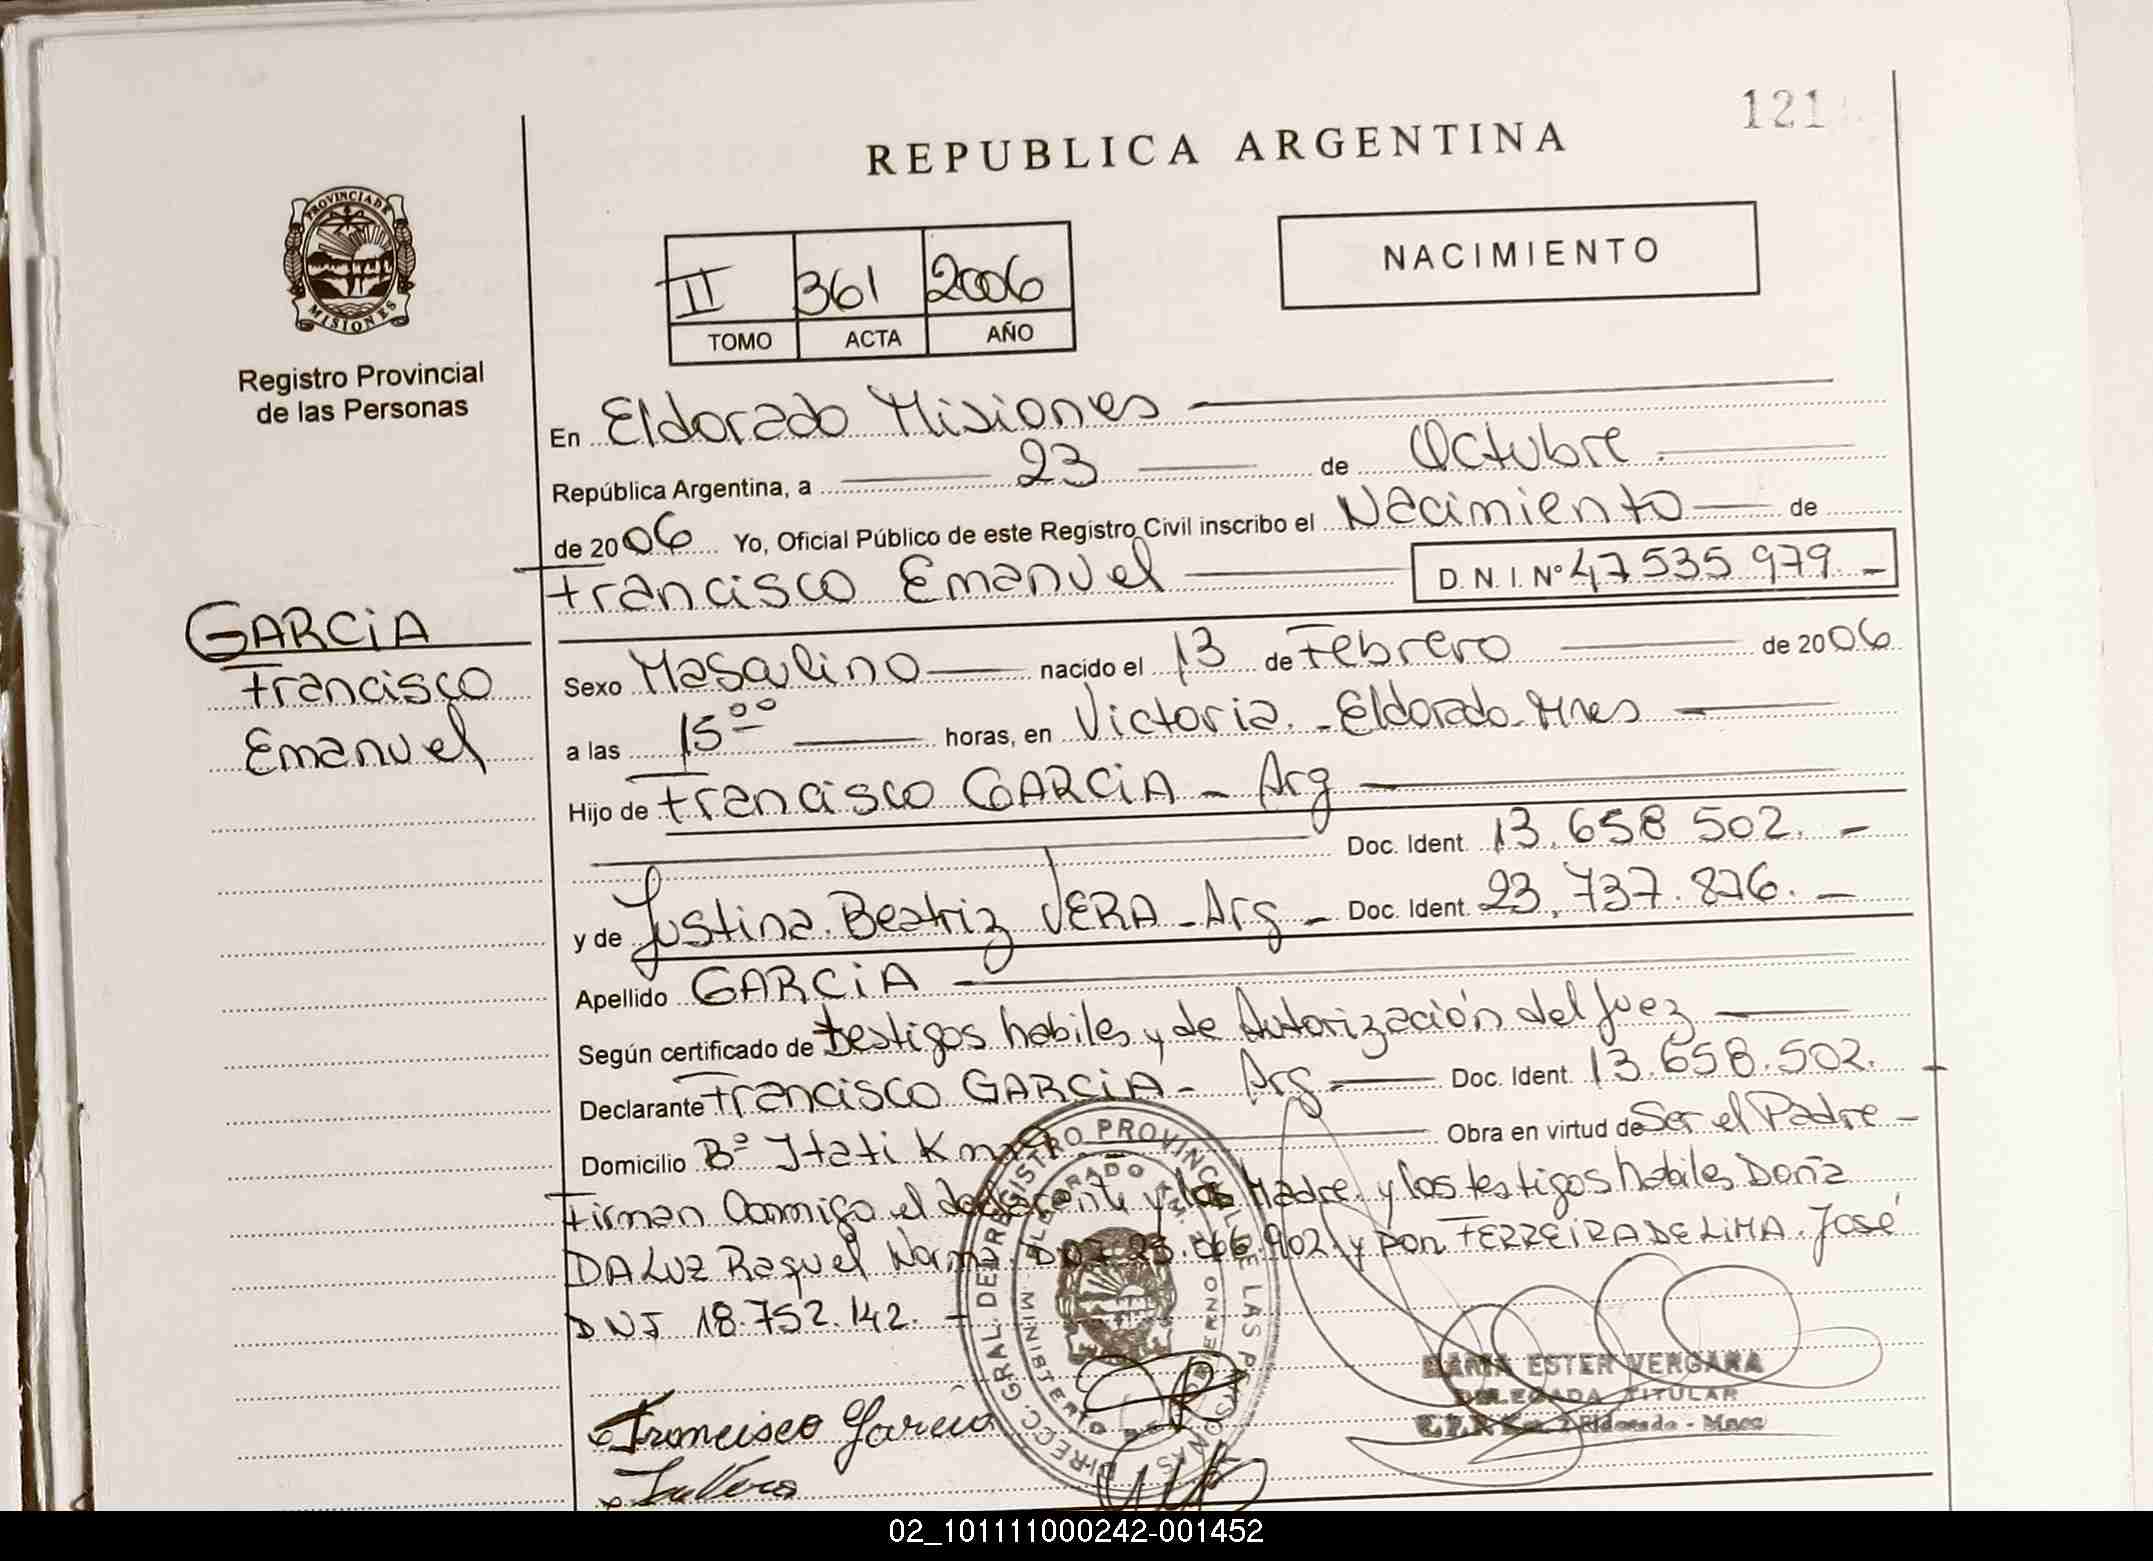 121
REPUBLICA ARGENTINA
PROVINCIA DE
MISIONES
Registro Provincial
de las Personas
II 361 2006
TOMO ACTA AÑO
NACIMIENTO
En Eldorado Misiones
República Argentina, a 23 de Octubre
de 2006 Yo, Oficial Público de este Registro Civil inscribo el Nacimiento de
Francisco Emanuel D. N. I. Nº 47535979.-
GARCiA
Francisco
Emanuel
Sexo Masculino nacido el 13 de Febrero de 2006
a las 15⁰⁰ horas, en Victoria.-Eldorado-Mnes
Hijo de Francisco GARCiA - Arg
Doc. Ident. 13.658 502. -
y de Justina. Beatriz VERA - Arg - Doc. Ident. 23.737.876. -
Apellido GARCiA
Según certificado de testigos habiles y de Autorización del Juez
Declarante Francisco GARCiA - Arg Doc. Ident. 13.658.502.
Domicilio Bº Itati Km Obra en virtud de Ser el Padre -
Firman Conmigo el declarante y la Madre. y los testigos habiles Doña
DA LUZ Raquel Norma DNI y Don FERREIRA DE LIMA. José
DNI 18.752.142. -
DIRECC. GRAL. DEL REGISTRO PROVINCIAL DE LAS PERSONAS
ELDORADO KM.
MINISTERIO DE GOBIERNO
MARIA ESTER VERGARA
DELEGADA TITULAR
Eldorado - Mnes
Francisco Garcia
02_101111000242-001452